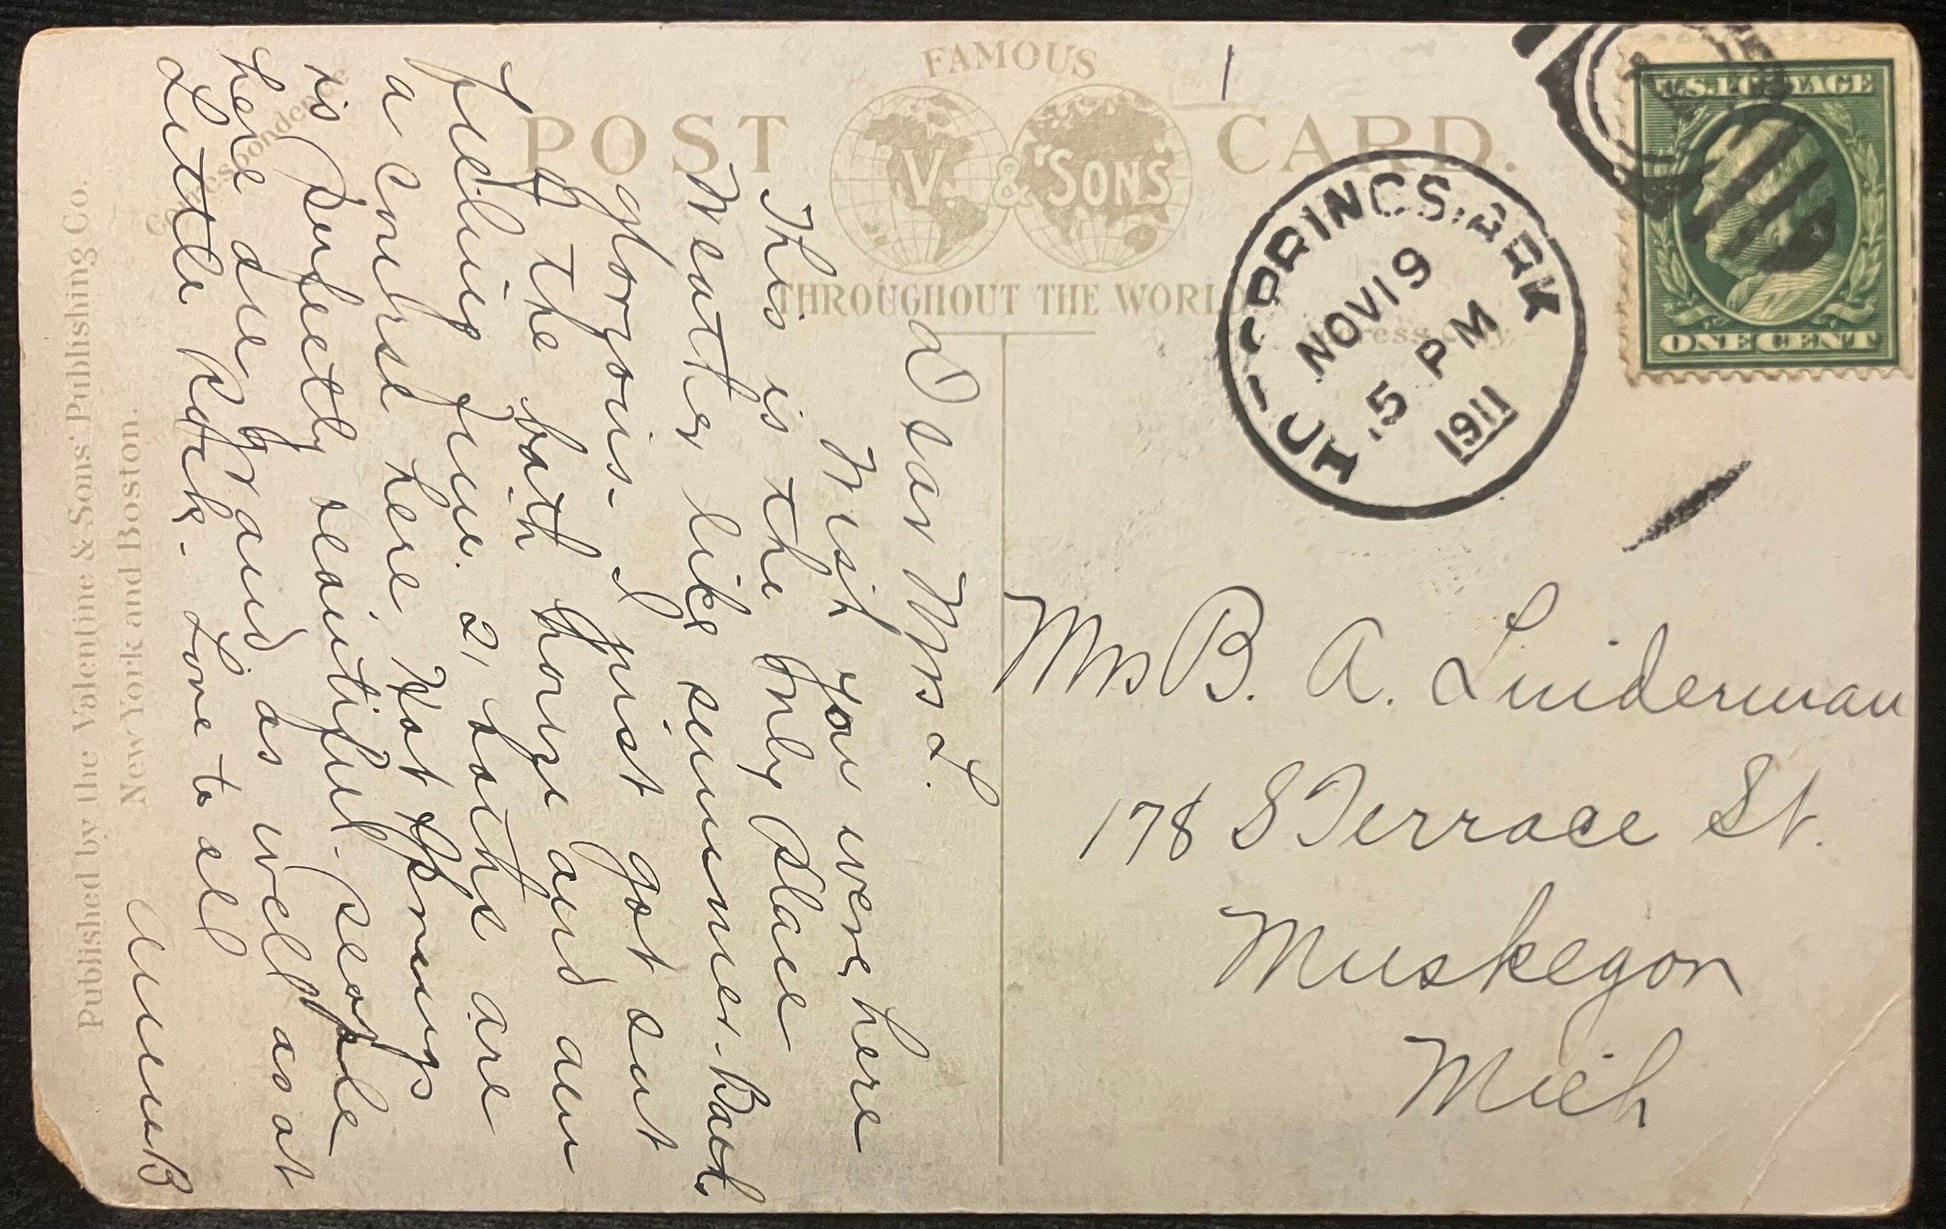 FAMOUS
POST CARD.
V. & "SONS"
THROUGHOUT THE WORLD
Correspondence
Published by the Valentine & Sons' Publishing Co.
New York and Boston.
U.S. POSTAGE
ONE CENT
SPRINGS. ARK
NOV 19
5 PM
1911
Dear Mrs L.
Wish you were here
This is the only place
Weather like summer. Bath
glorious. I just got out
of the bath house and am
feeling fine. 21 baths are
a course here. Hot Springs
is perfectly beautiful. People
here are grand as well as at
Little Rock. Love to all
Mrs B. A. Linderman
178 S Terrace St.
Muskegon
Mich